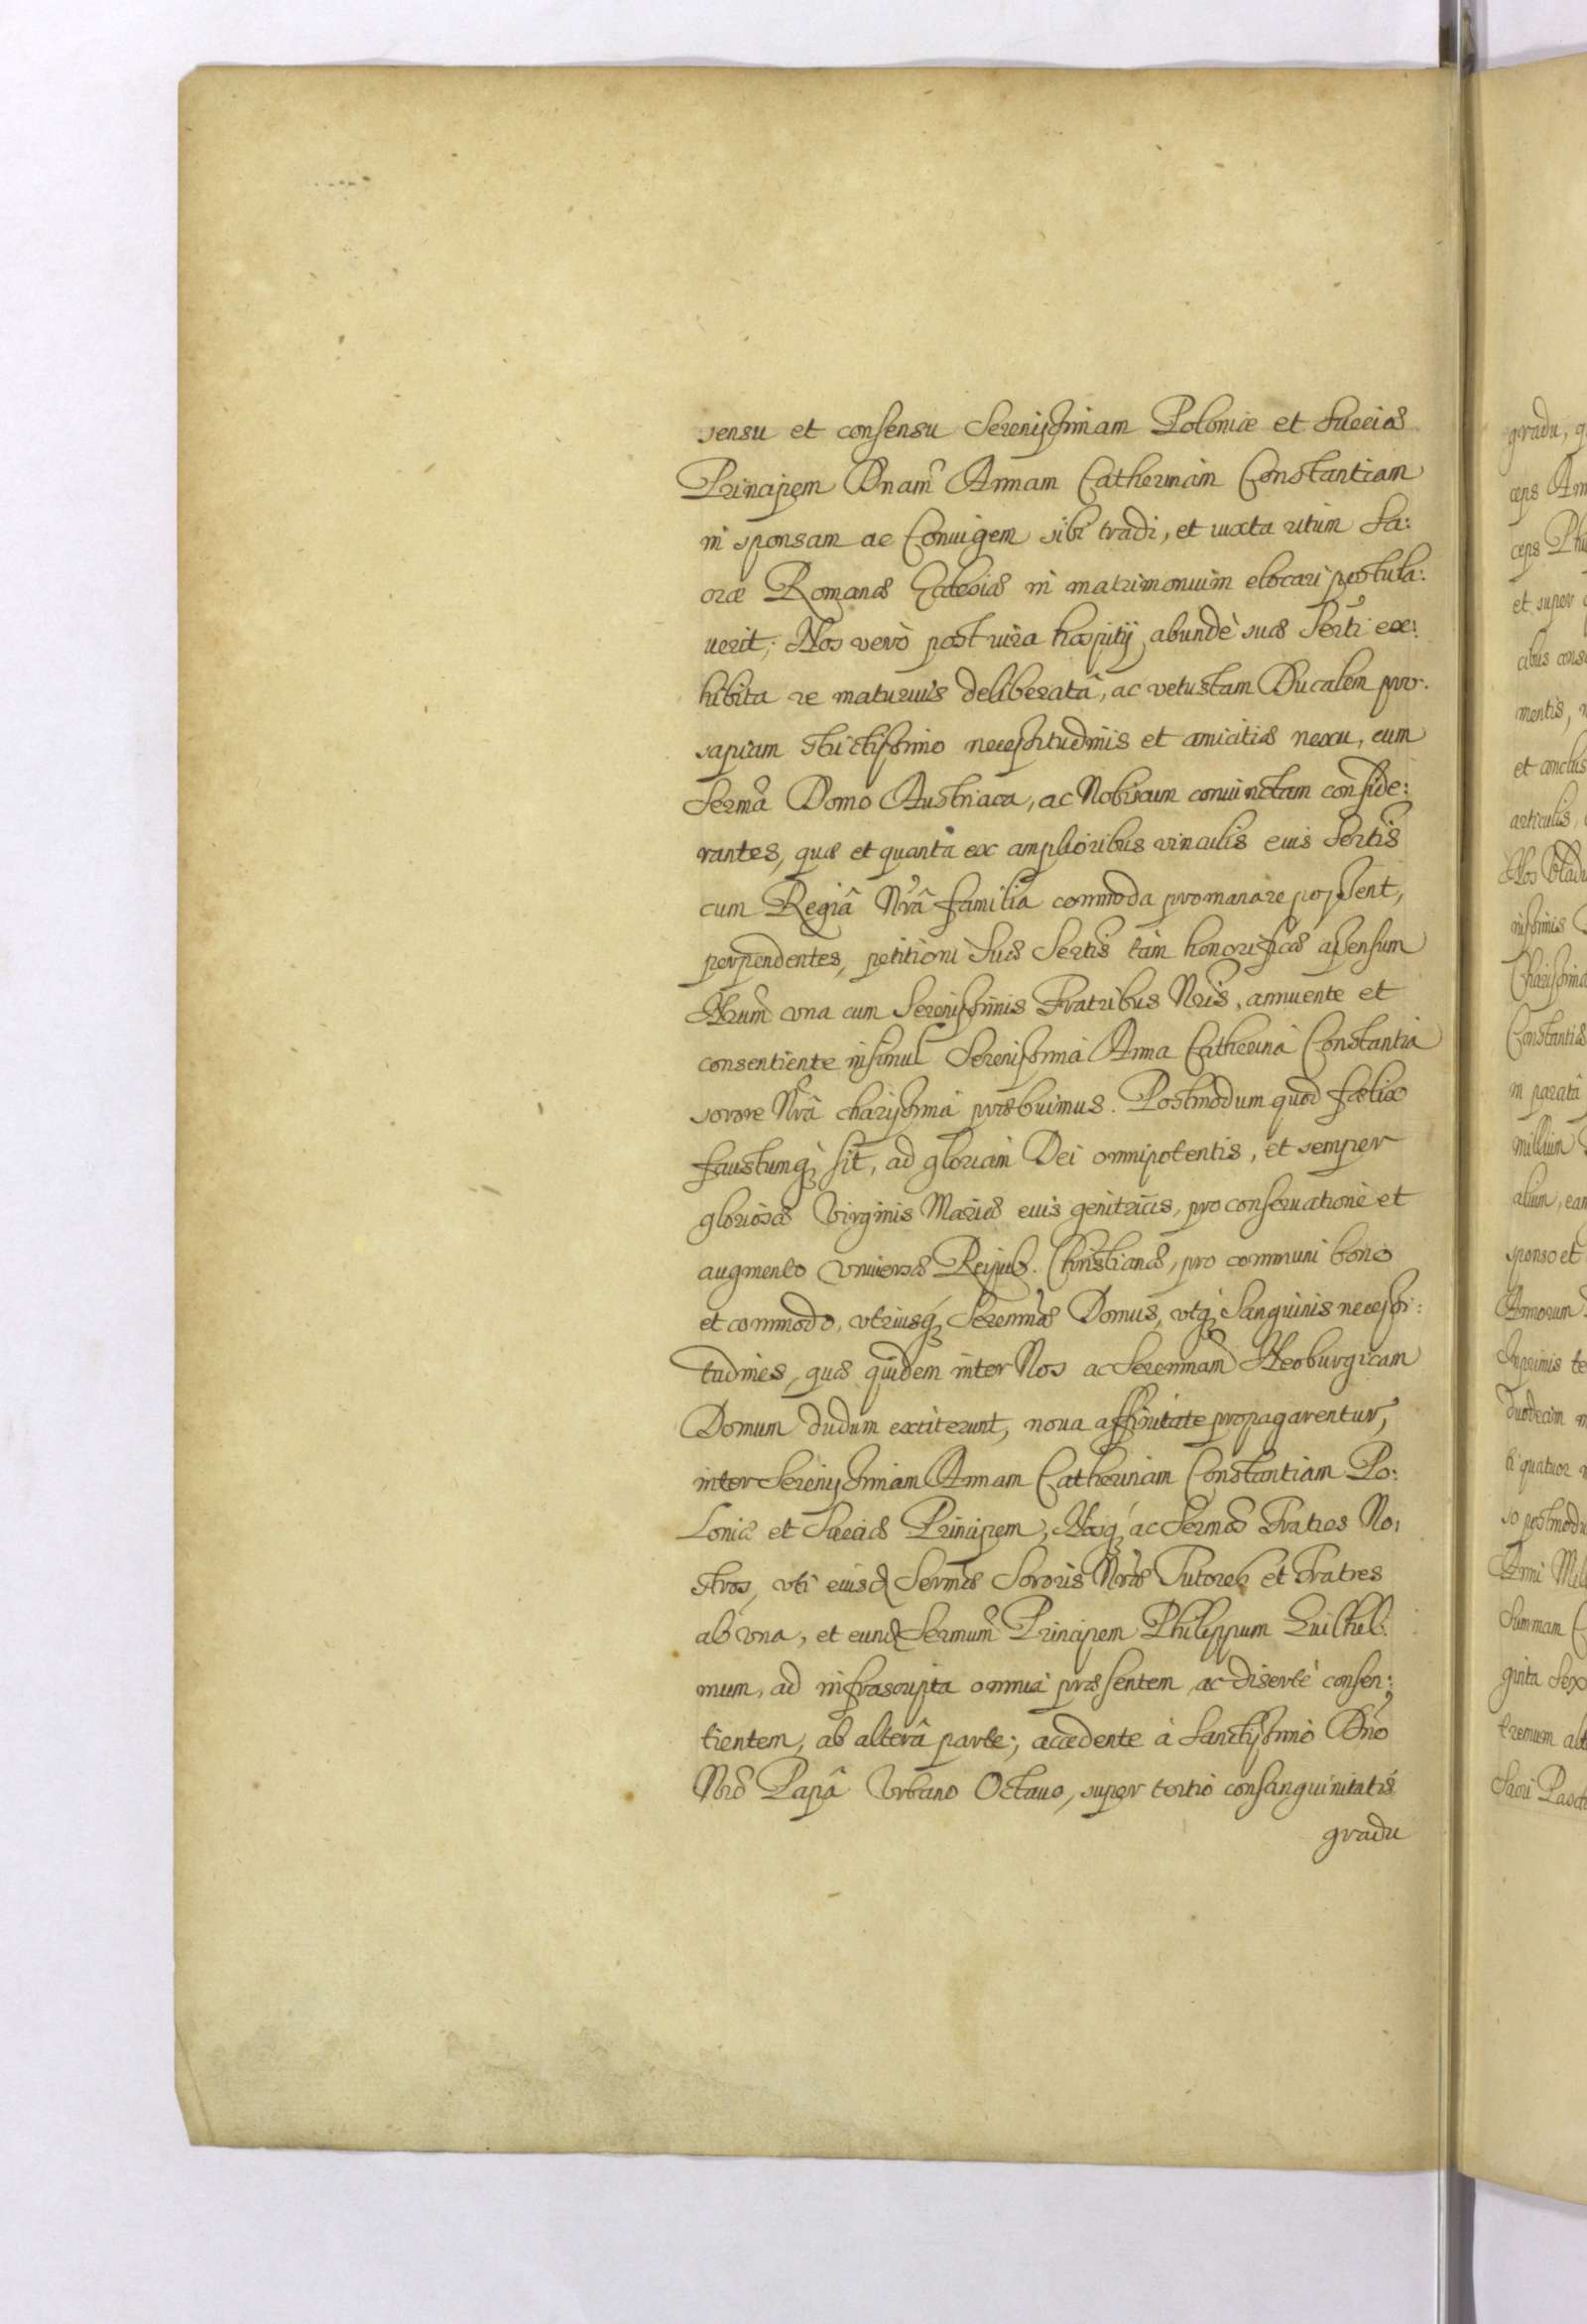 sensu et consensu Serenissimam Poloniæ et Sueciæ
Principem Dnam Annam Catherinam Constantiam
in sponsam ac Coniugem sibi tradi, et iuxta ritum Sa:
cræ Romanæ Ecclesiæ in matrimonium elocari postula:
uerit; Nos verò post iura hospitij abundè suæ Serti ex:
hibita re maturius deliberatâ, ac vetustam Ducalem pro:
sapiam strictissimo necessitudinis et amicitiæ nexu, cum
Sermâ Domo Austriaca, ac Nobiscum coniunctam conside:
rantes, quæ et quanta ex amplioribus vinculis eius Sertis
cum Regiâ Nrâ familia commoda promanare possent,
perpendentes, petitioni Suæ Sertis tam honorificæ assensum
Nrum vna cum Serenissimis Fratribus Nris, annuente et
consentiente insimul Serenissima Anna Catherina Constantia
sorore Nrâ charissima præbuimus. Postmodum quod fœlix
faustumq; sit, ad gloriam Dei omnipotentis, et semper
gloriosæ Virginis Mariæ eius genitricis, pro conseruatione et
augmento vniuersæ Reipub. Christianæ, pro communi bono
et commodo, vtriusq; Serenmæ Domus, vtq; Sanguinis necessi:
tudines, quæ quidem inter Nos ac Serenmam Neoburgicam
Domum dudum extiterunt, noua affinitate propagarentur,
inter Serenissimam Annam Catherinam Constantiam Po:
loniæ et Sueciæ Principem, Nosq; ac Sermos Fratres No:
stros, vti eiusd Sermæ Sororis Nræ Tutores et Fratres
ab vna, et eund Sermum Principem Philippum Guilhel:
mum, ad infrascripta omnia præsentem ac disertè consen:
tientem, ab alterâ parte; accedente à Sanctissimo Dno
Nro Papâ Vrbano Octauo, super tertio consanguinitatis
gradu